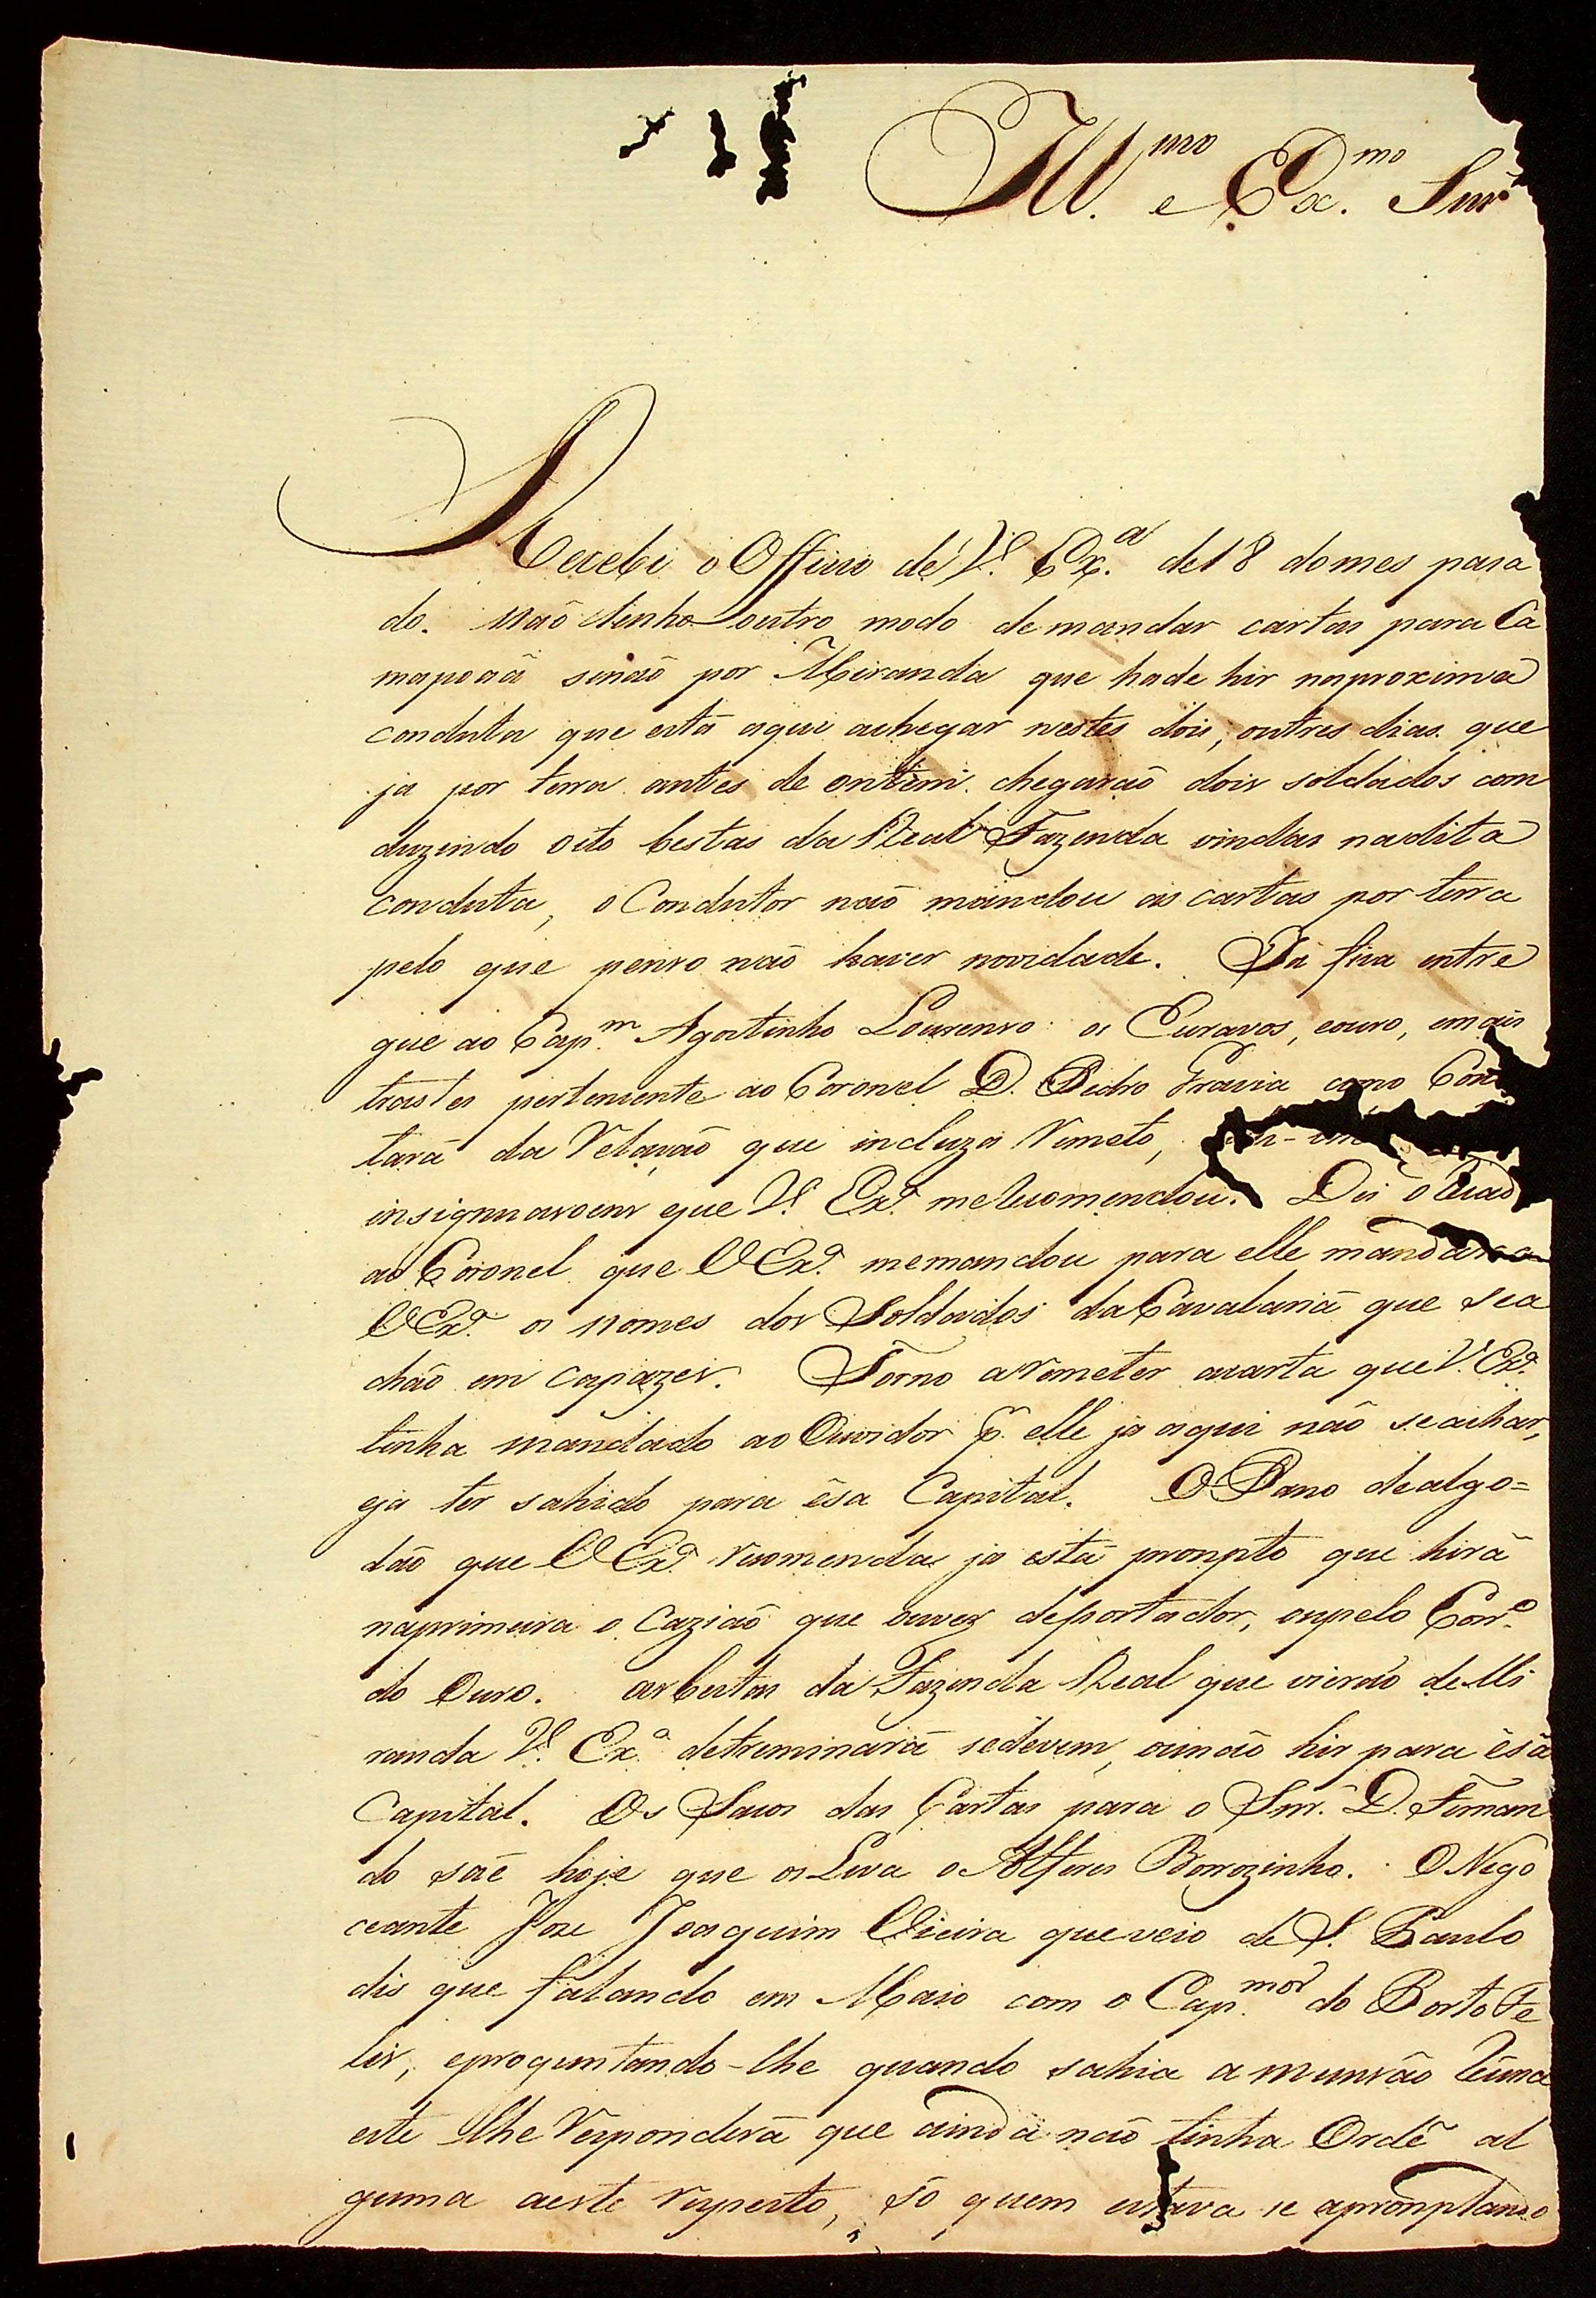 Ill.mo e Ex.mo Snr
Recebi o Officio de V. Ex.a de 18 do mes pasa
do. não tenho outro modo de mandar cartas para Ca
mapoaã sinaõ por Miranda que hade hir naproxima
conduta que está aqui achegar nestes dois, outres dias que
ja por terra antes de ontem chegaraõ dois soldados com
duzindo oito bestas da Real Fazenda vindas nadita
conduta, o Condutor naõ mandou as cartas por terra
pelo que penso naõ haver novidade. Ja fica entre
gue ao Cap.m Agostinho Lourenso os Escravos, eouro, emais
trastes pertensente ao Coronel D. Pedro Gravia como Con
tará da Relaçaõ que incluza Remeto,
insignuasoens que V. Ex.a meRecomendou. Dei o
ao Coronel que V Ex.a memandou para elle mandar a
V Ex.a os nomes dos Soldados da Cavalaria que sea
chaõ em capazes. Torno aRemeter acarta que V. Ex.a
tinha mandado ao Ouvidor p.r elle ja aqui não seachar,
eja ter sahido para ésa Capital. O Pano dealgo=
dão que V Ex.a recomenda ja está pronpto que hirá
naprimeira o caziaõ que ouver deportador, oupelo Corr.o
do Ouro. asbestas da Fazenda Real que vieraõ de Mi
randa V. Ex.a detreminará sedevem, ounaõ hir para ésa
Capital. Os Sacos das Cartas para o Snr. D. Fernan
do saé hoje que os Leva o Alferes Borrozinho. O Nego
ceante Joze Joaquim Vieira queveio de S. Paulo
dis que falando em Maio com o Cap.mor do Porto Fe
lis, eproguntando-lhe quando sahia a munsão Reuna
este lhe Responderá que ainda naõ tinha Ordẽ al
guma aeste respeito, só quem estava se apronptando